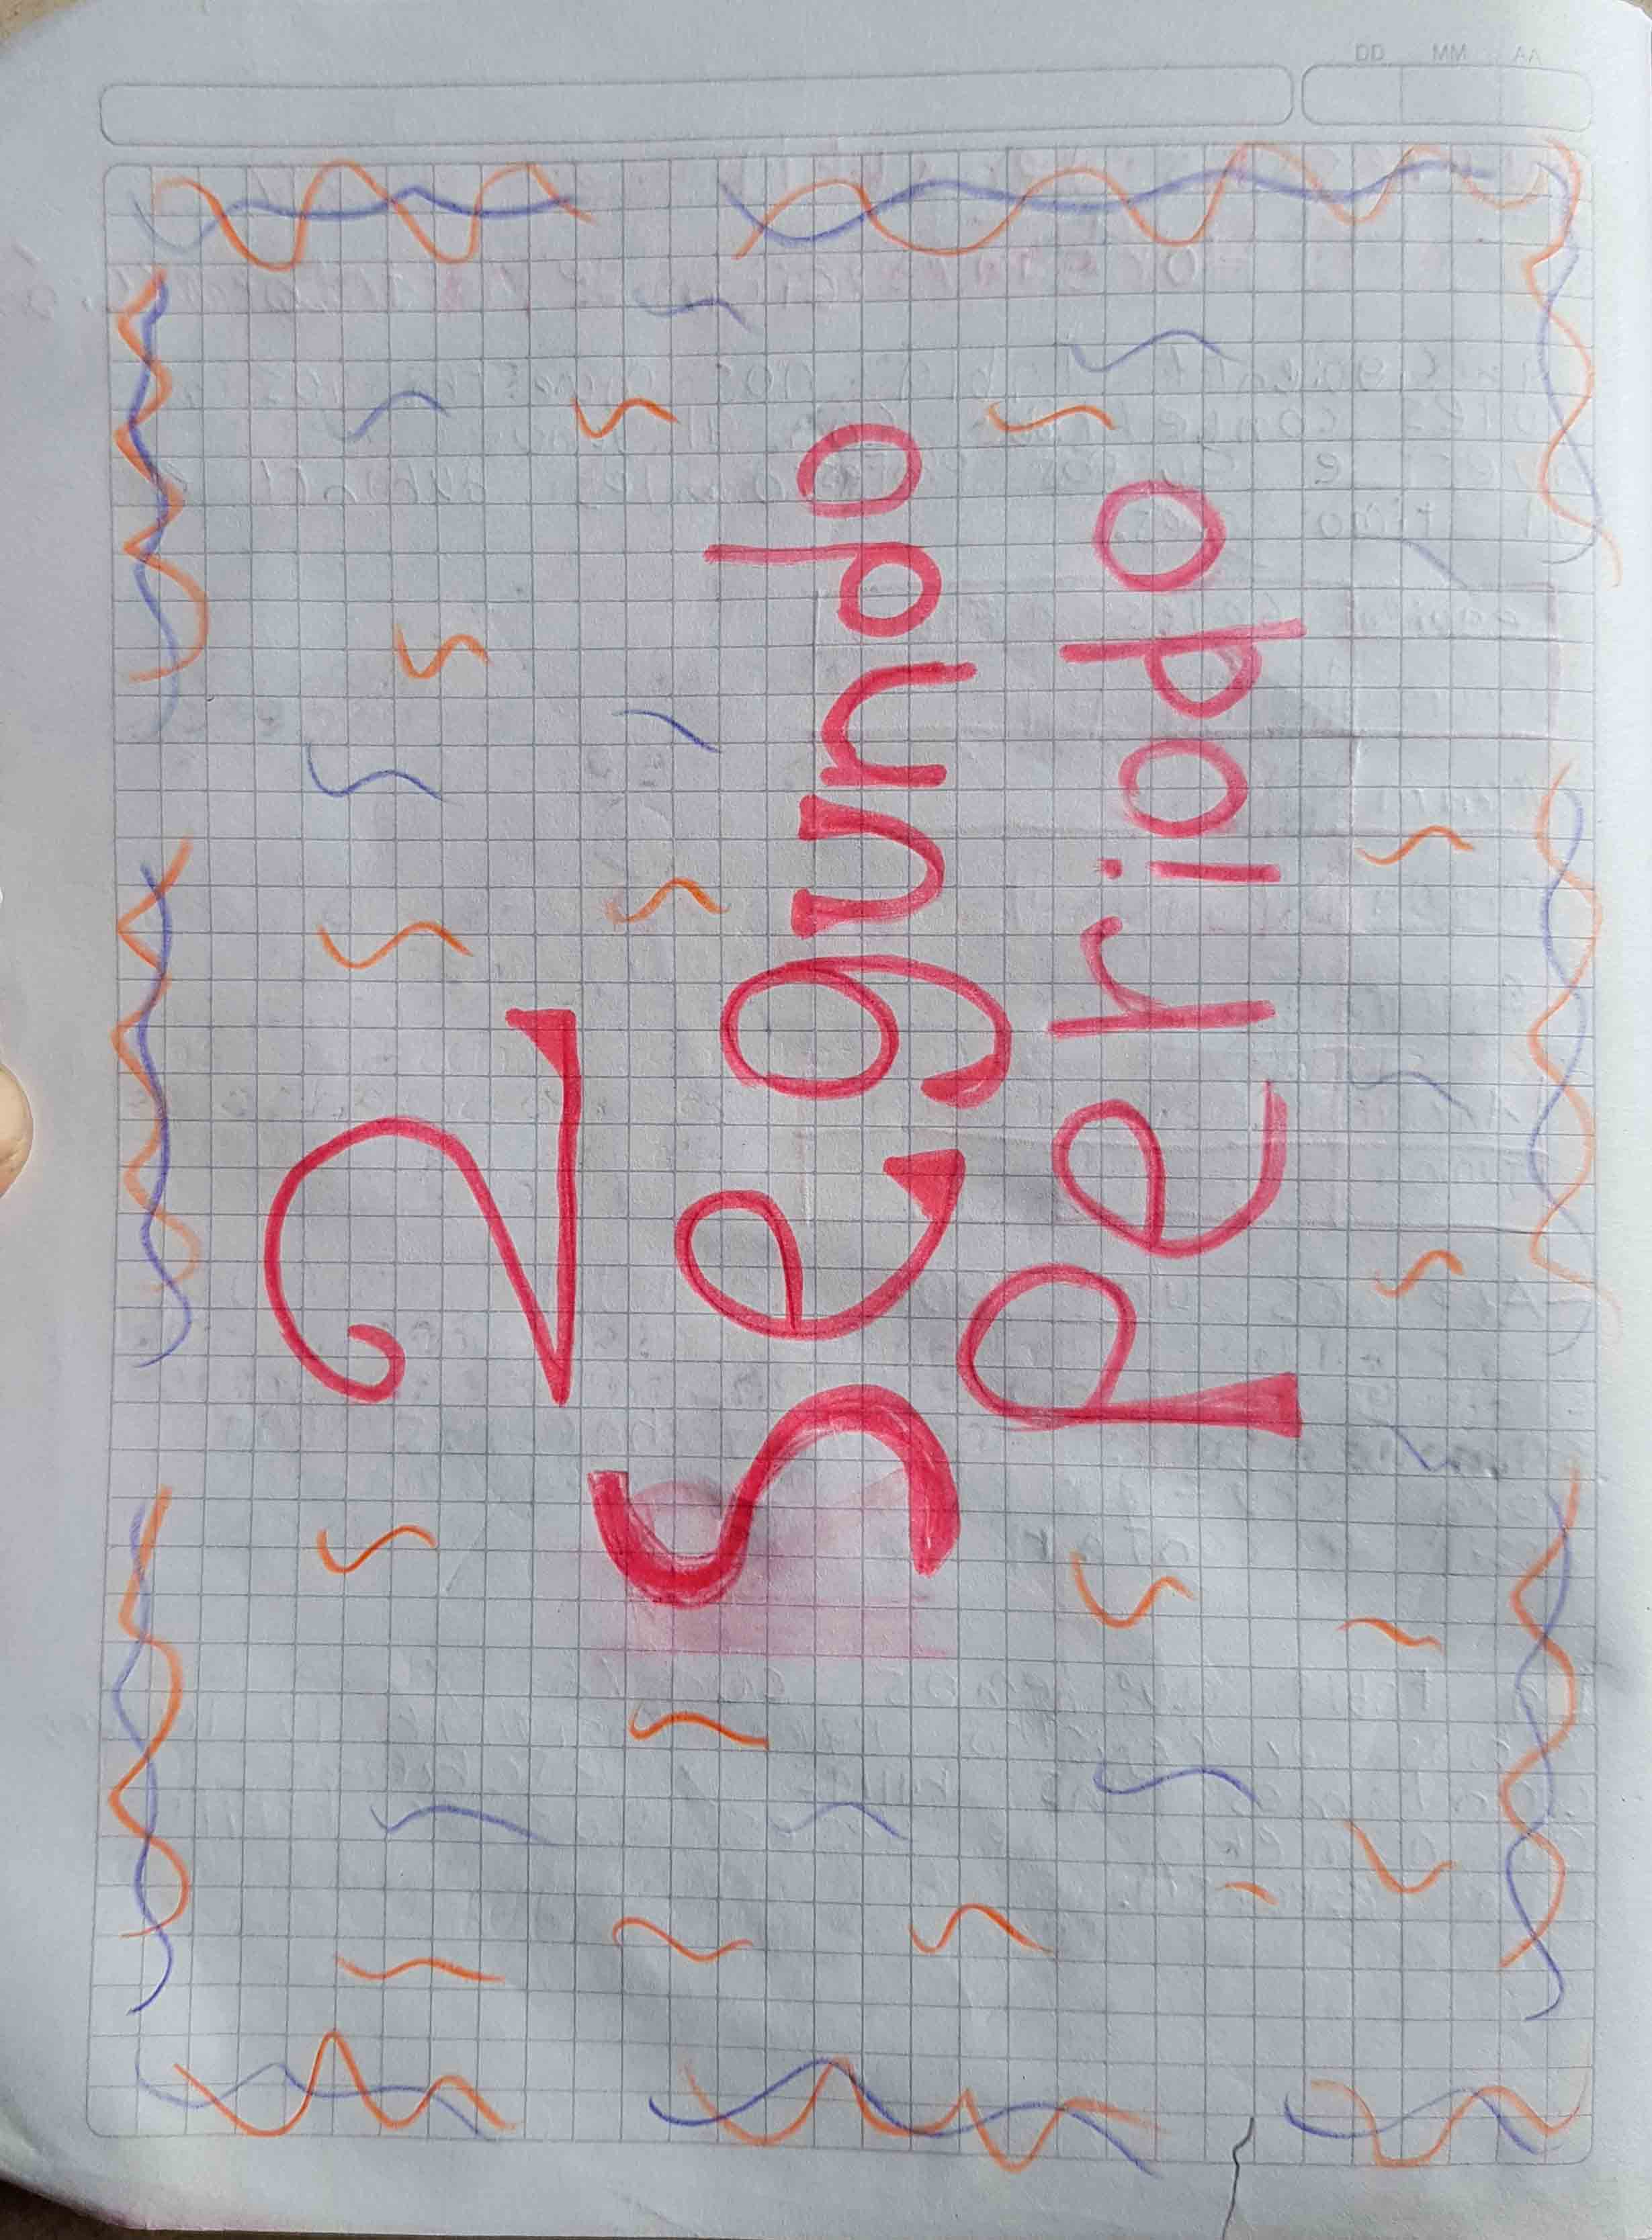 DD MM AA
2
Segundo
Periodo